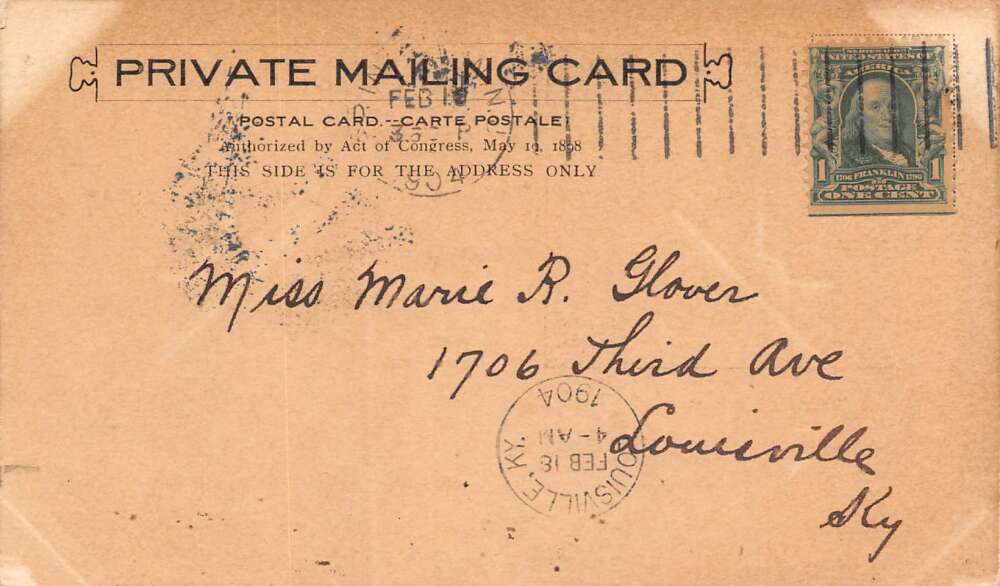 PRIVATE MAILING CARD
POSTAL CARD.--CARTE POSTALE.
Authorized by Act of Congress, May 19, 1898
THIS SIDE IS FOR THE ADDRESS ONLY
FEB
904
UNITED STATES OF
AMERICA
1 1706 FRANKLIN 1790 1
POSTAGE
ONE CENT
Miss Marie R. Glover
1706 Third Ave
Louisville
Ky
LOUISVILLE, KY.
FEB 18
4-AM
1904